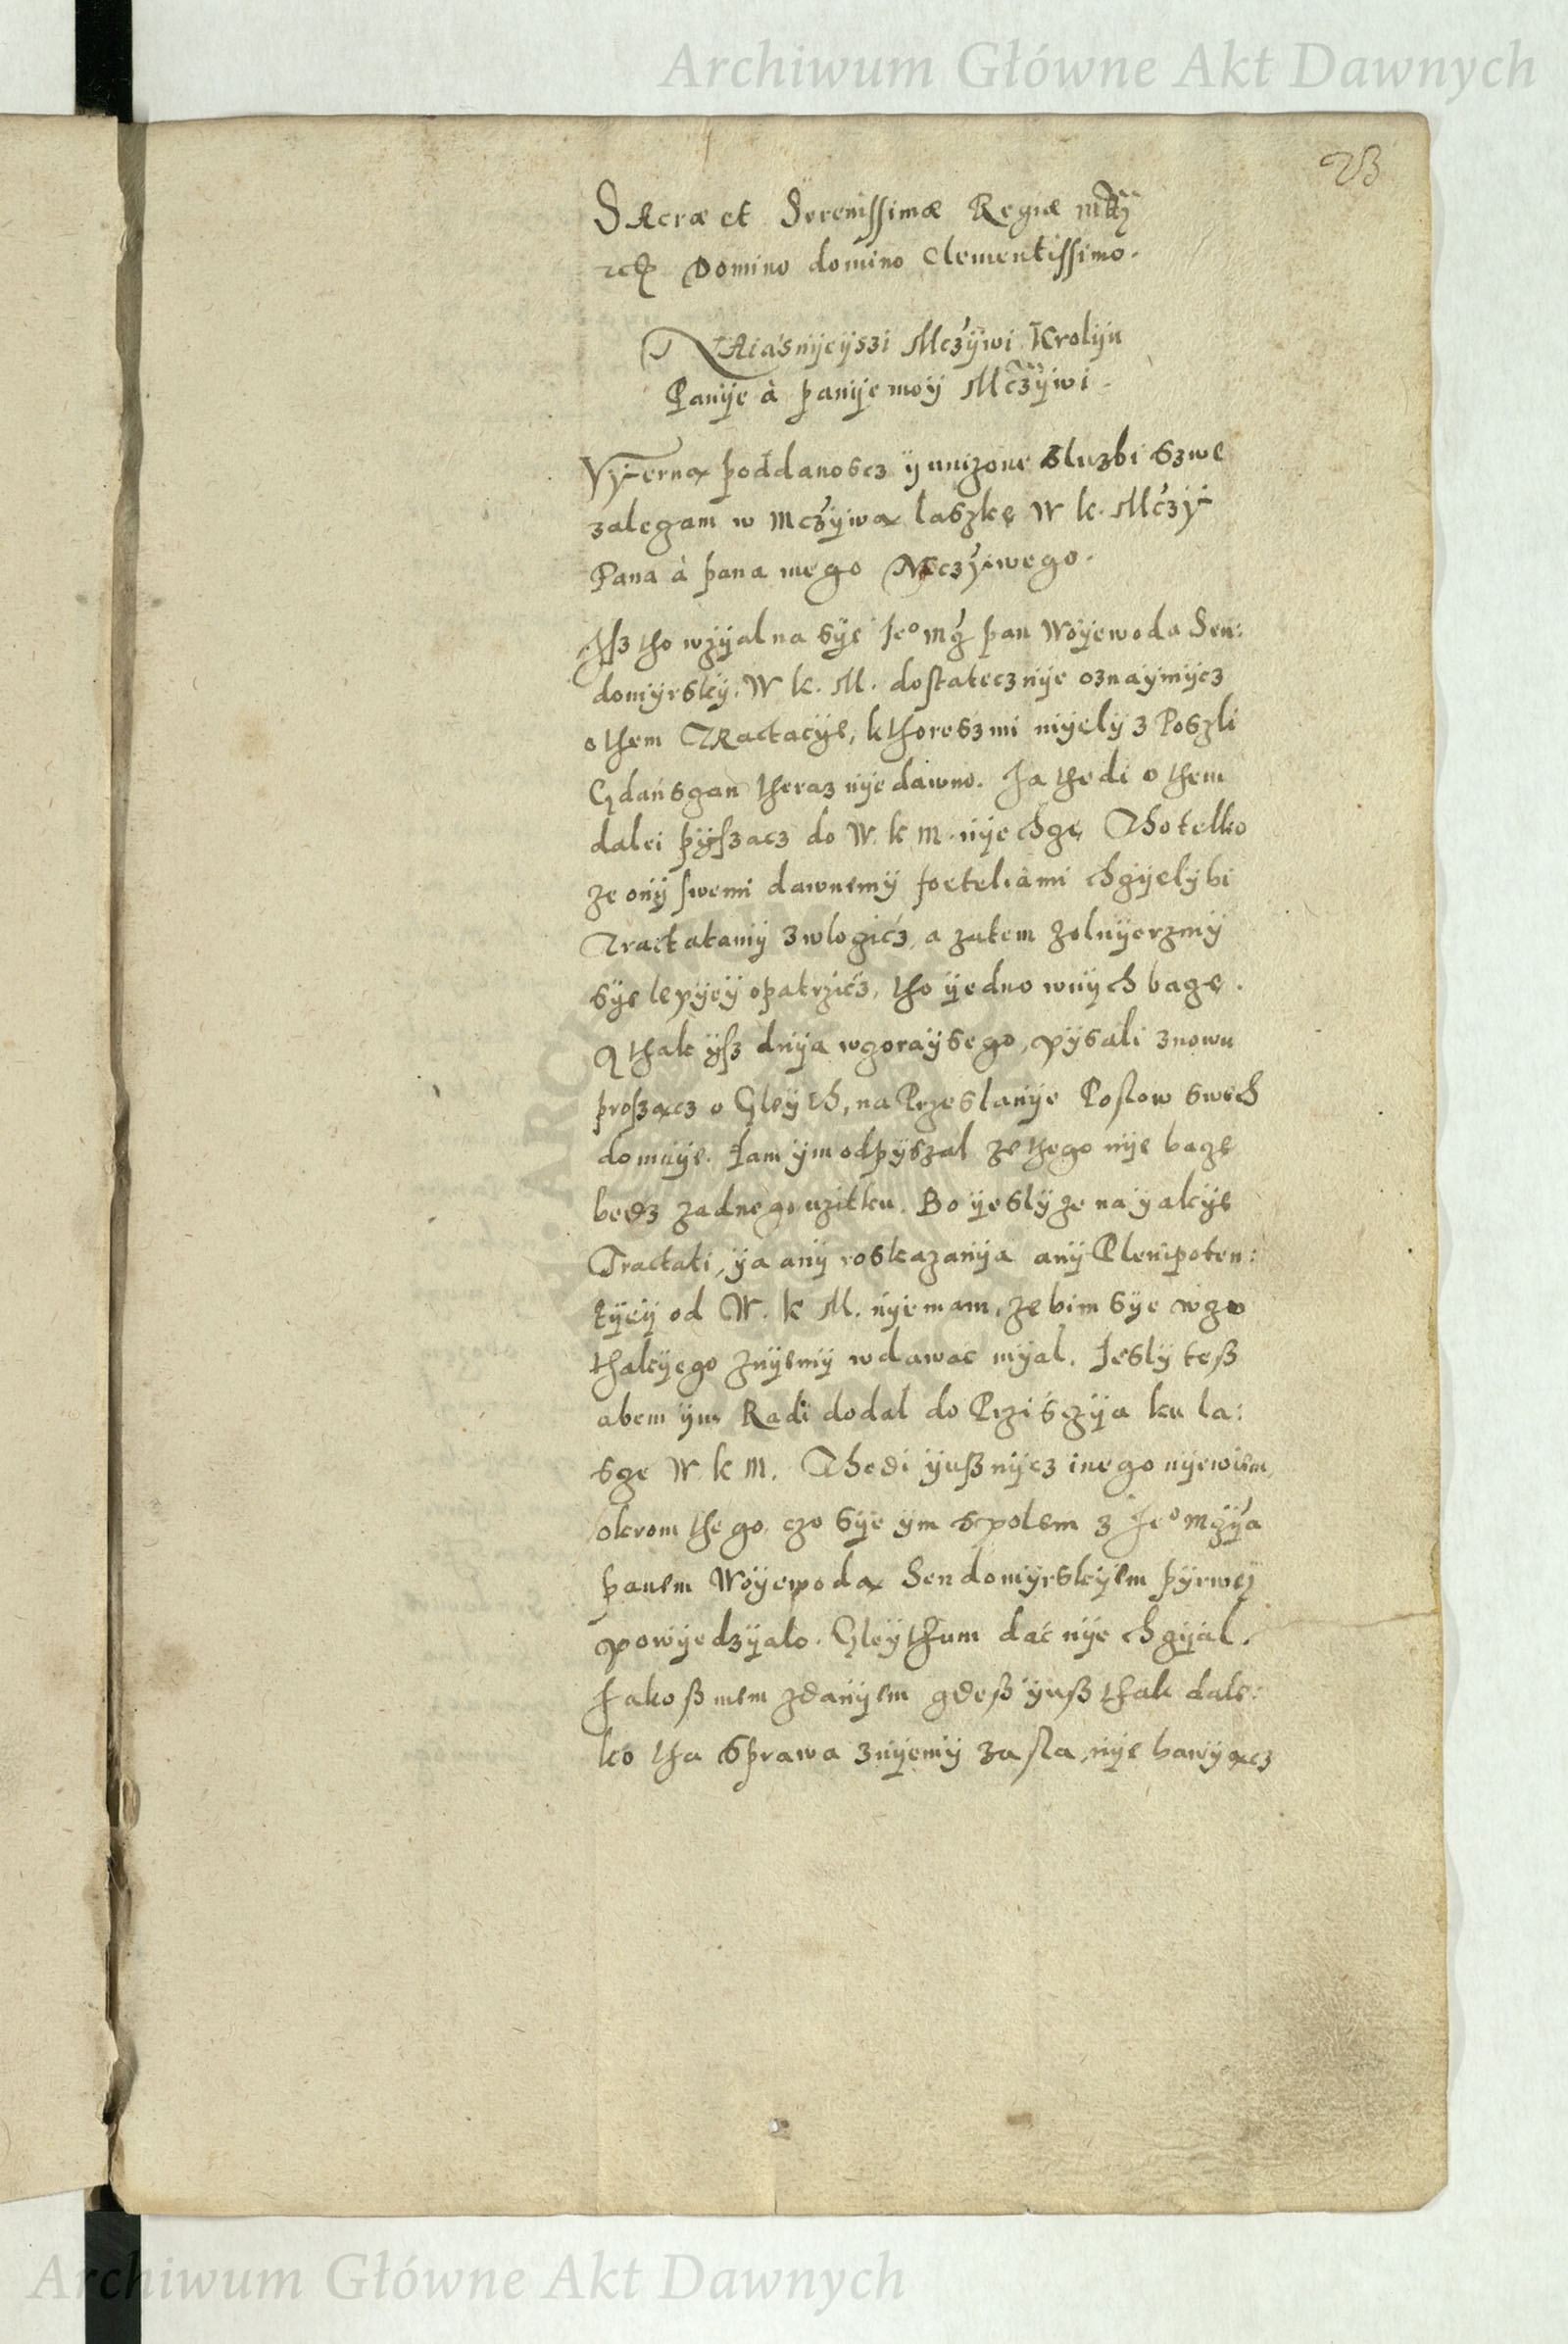 Archiwum Główne Akt Dawnych
23
SAcræ et Serenissimæ Regiæ mtti
Domino domino Clementissimo.
NAiasnÿeÿszi Mczÿwi Krolÿu
Panÿe à panÿe moÿ Mczÿwi.
Vÿerna poddanoscz ÿ unizone Sluzbi szwe
zalegam w Mczÿwa laszke W k. Mczÿ
Pana à pana mego Mczÿwego.
Isz tho wzÿal na sÿe Jeo mz pan Woÿewoda Sen:
domÿrskÿ. W k. M. dostatecznÿe oznaÿmÿcz
o them Tractacÿe, kthoreszmi mÿelÿ z Poszli
Gdańsgan theraz nÿedawno. Ja thedi o them
dalei pÿszacz do W. k M. nÿe chge Tho telko
ze onÿ swemi dawnemÿ foeteliami chgÿelÿ bi
Tractatamÿ zwlogicz, a zatem zolnÿerzmÿ
sÿe lepÿeÿ opatrzicz, tho ÿedno wnÿch bage.
A thak ÿsz dnÿa wgoraÿsego, pÿsali znowu
proszacz o Gleÿth, na Przeslanÿe Poslow swech
do mnÿe. Jam ÿm odpÿszal ze thego nÿe bage
bedz zadnego uzitku. Bo ÿeslÿ ze na ÿakÿe
Tractati, ÿa anÿ roskazanÿa anÿ Plenipoten:
tÿeÿ od W. k M. nÿe mam, ze bim sÿe wgo
thakÿego znÿemÿ wdawac mÿal. Jeslÿ teß
abem ÿm Radi dodal do Prziśgÿa ku la:
sge W k M. Thedi ÿuß nÿcz inego nÿewiem,
okrom thego, czo sÿe ÿm spolem z Jeo mgÿa
panem Woÿewoda Sendomÿrskÿem pÿrweÿ
powÿedzÿalo. Gleÿthum dać nÿe chgÿal.
Jakoß mem zdanÿem gdeß ÿuß thak dale:
ko tha sprawa znÿemÿ zasla, nÿe bawÿacz
Archiwum Główne Akt Dawnych